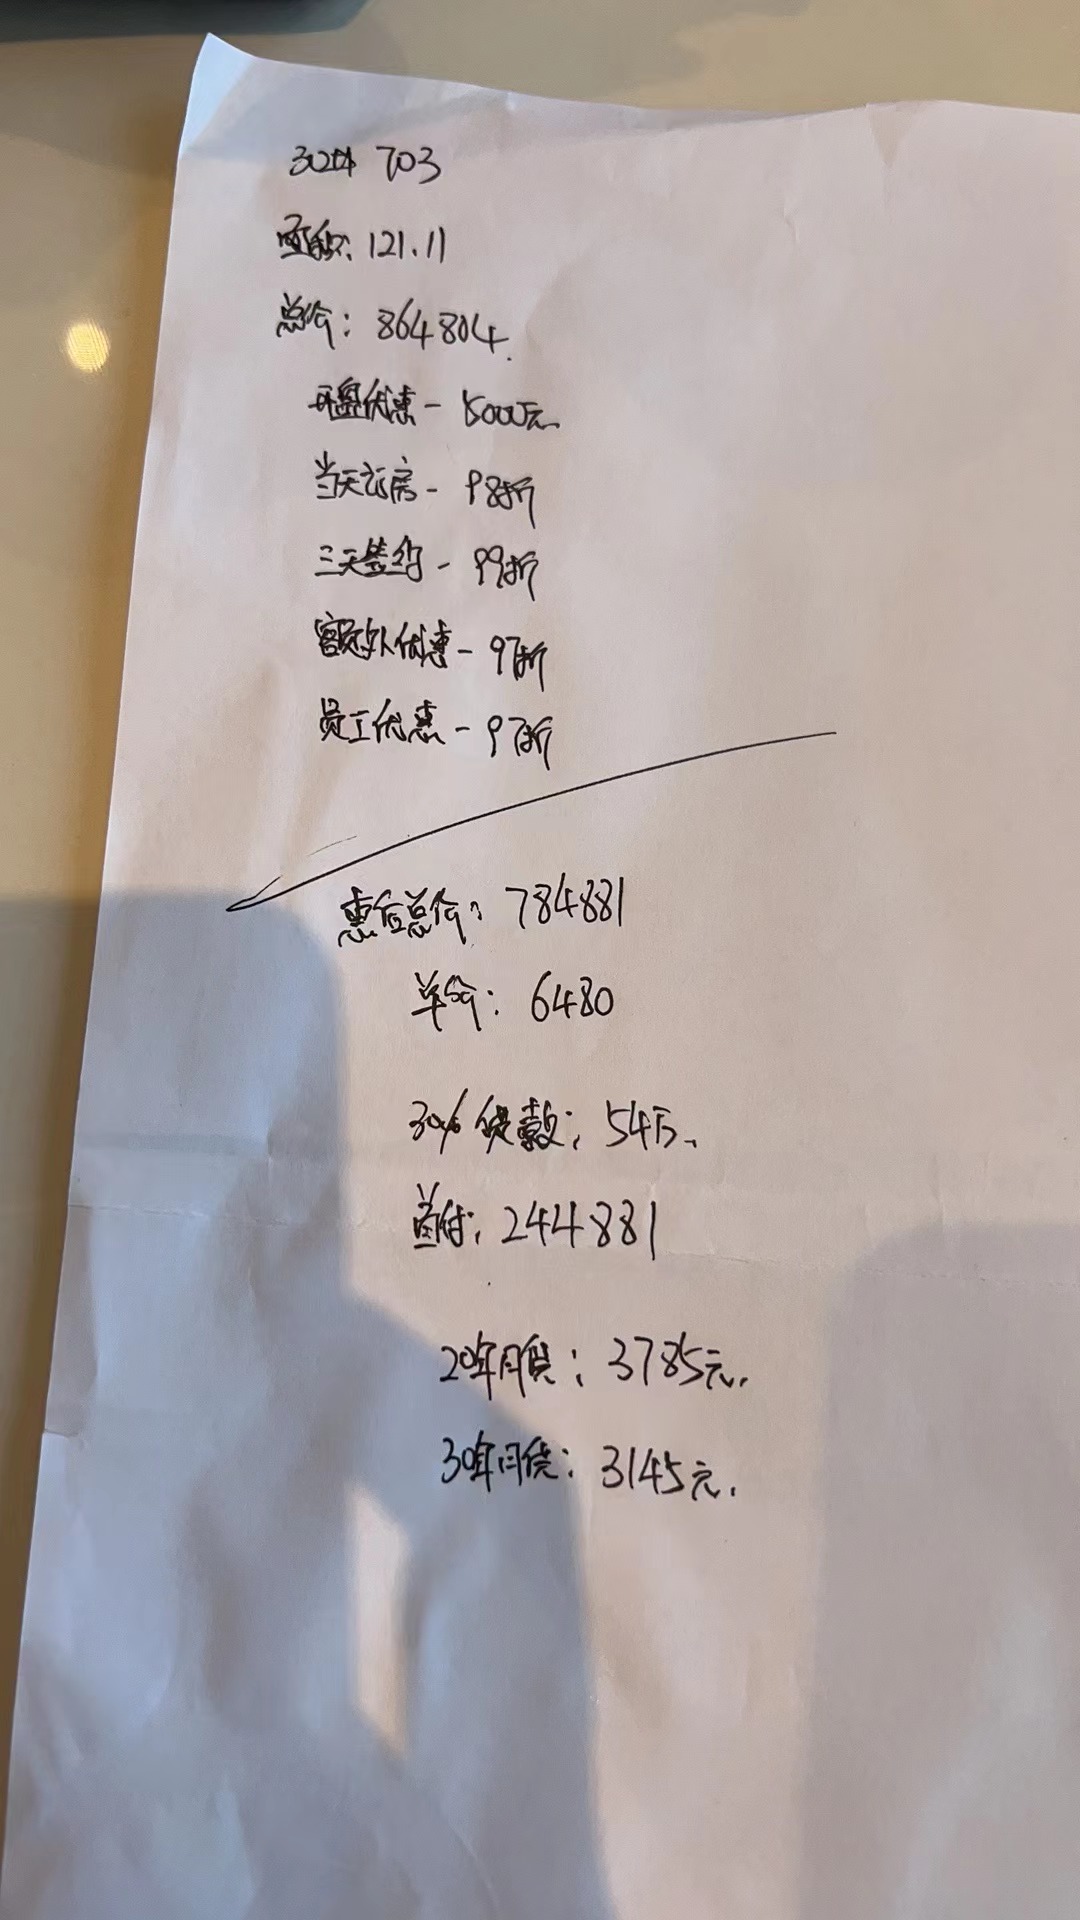 30# 703
面积：121.11
总价：864804.
开盘优惠－5000元
当天订房－98折
三天签约－99折
额外优惠－97折
员工优惠－97折
惠后总价：784881
单价：6480
30% 贷款：54万
首付：244881
20年月供：3785元.
30年月贷：3145元.